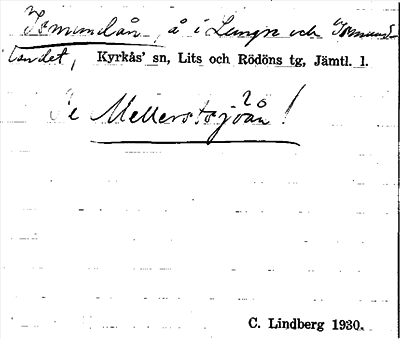 Ismundån, å i Lungre och Ismund-
landet, Kyrkås' sn, Lits och Rödöns tg, Jämtl. l.
Se Mellerstsjöån!
C. Lindberg 1930.